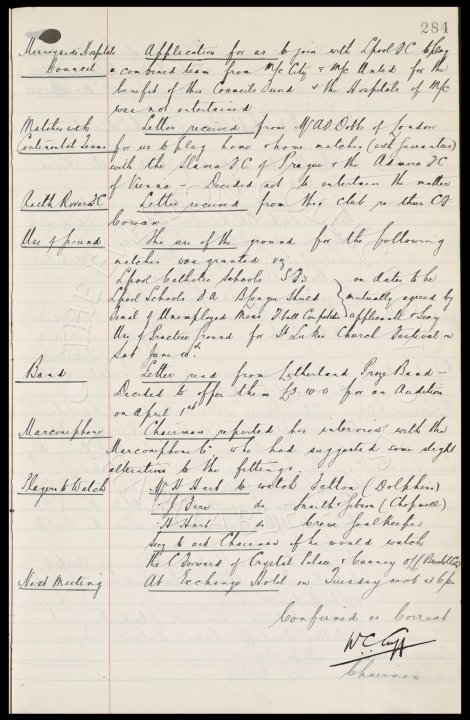 284
Merseyside Hospitals Council
Application for us to join with Lpool FC to play
a combined team from M/c City & M/c United for the
benefit of this Councils Fund & the Hospitals of M/c
was not entertained
Matches with Continental Teams
Letter received from Mr A D Dobbs of London
for us to play home & home matches (with guarantees)
with the Slavia FC of Prague & the Admira FC
of Vienna - Decided not to entertain the matter
Raith Rovers FC
Letter received from this club re their CF
Cowan
Use of ground
The use of the ground for the following
matches was granted viz
Lpool Catholic Schools S.F.
Lpool Schools F A League Shield
Final of Unemployed Mens Fball Competn
on dates to be
mutually agreed by
applicants & Secy
Use of Practice ground for St Lukes Church Festival on
Sat June 10th
Band
Letter read from Litherland Prize Band -
Decided to offer them £3-10-0 for an Audition
on April 1st
Marconiphone
Chairman reported his interview with the
Marconiphone Co who had suggested some slight
alterations to the fittings.
Players to Watch
Mr H Hart to watch Salton (Dolphins)
do Smith & Gibson (Chopwell)
H Hart do Crewe Goalkeeper
Secy to ask Chairman if he would watch
the C Forward of Crystal Palace & Canney O/L (Bristol City)
Next Meeting
At Exchange Hotel on Tuesday next at 6 pm
Confirmed as Correct
W.C. Cuff
Chairman